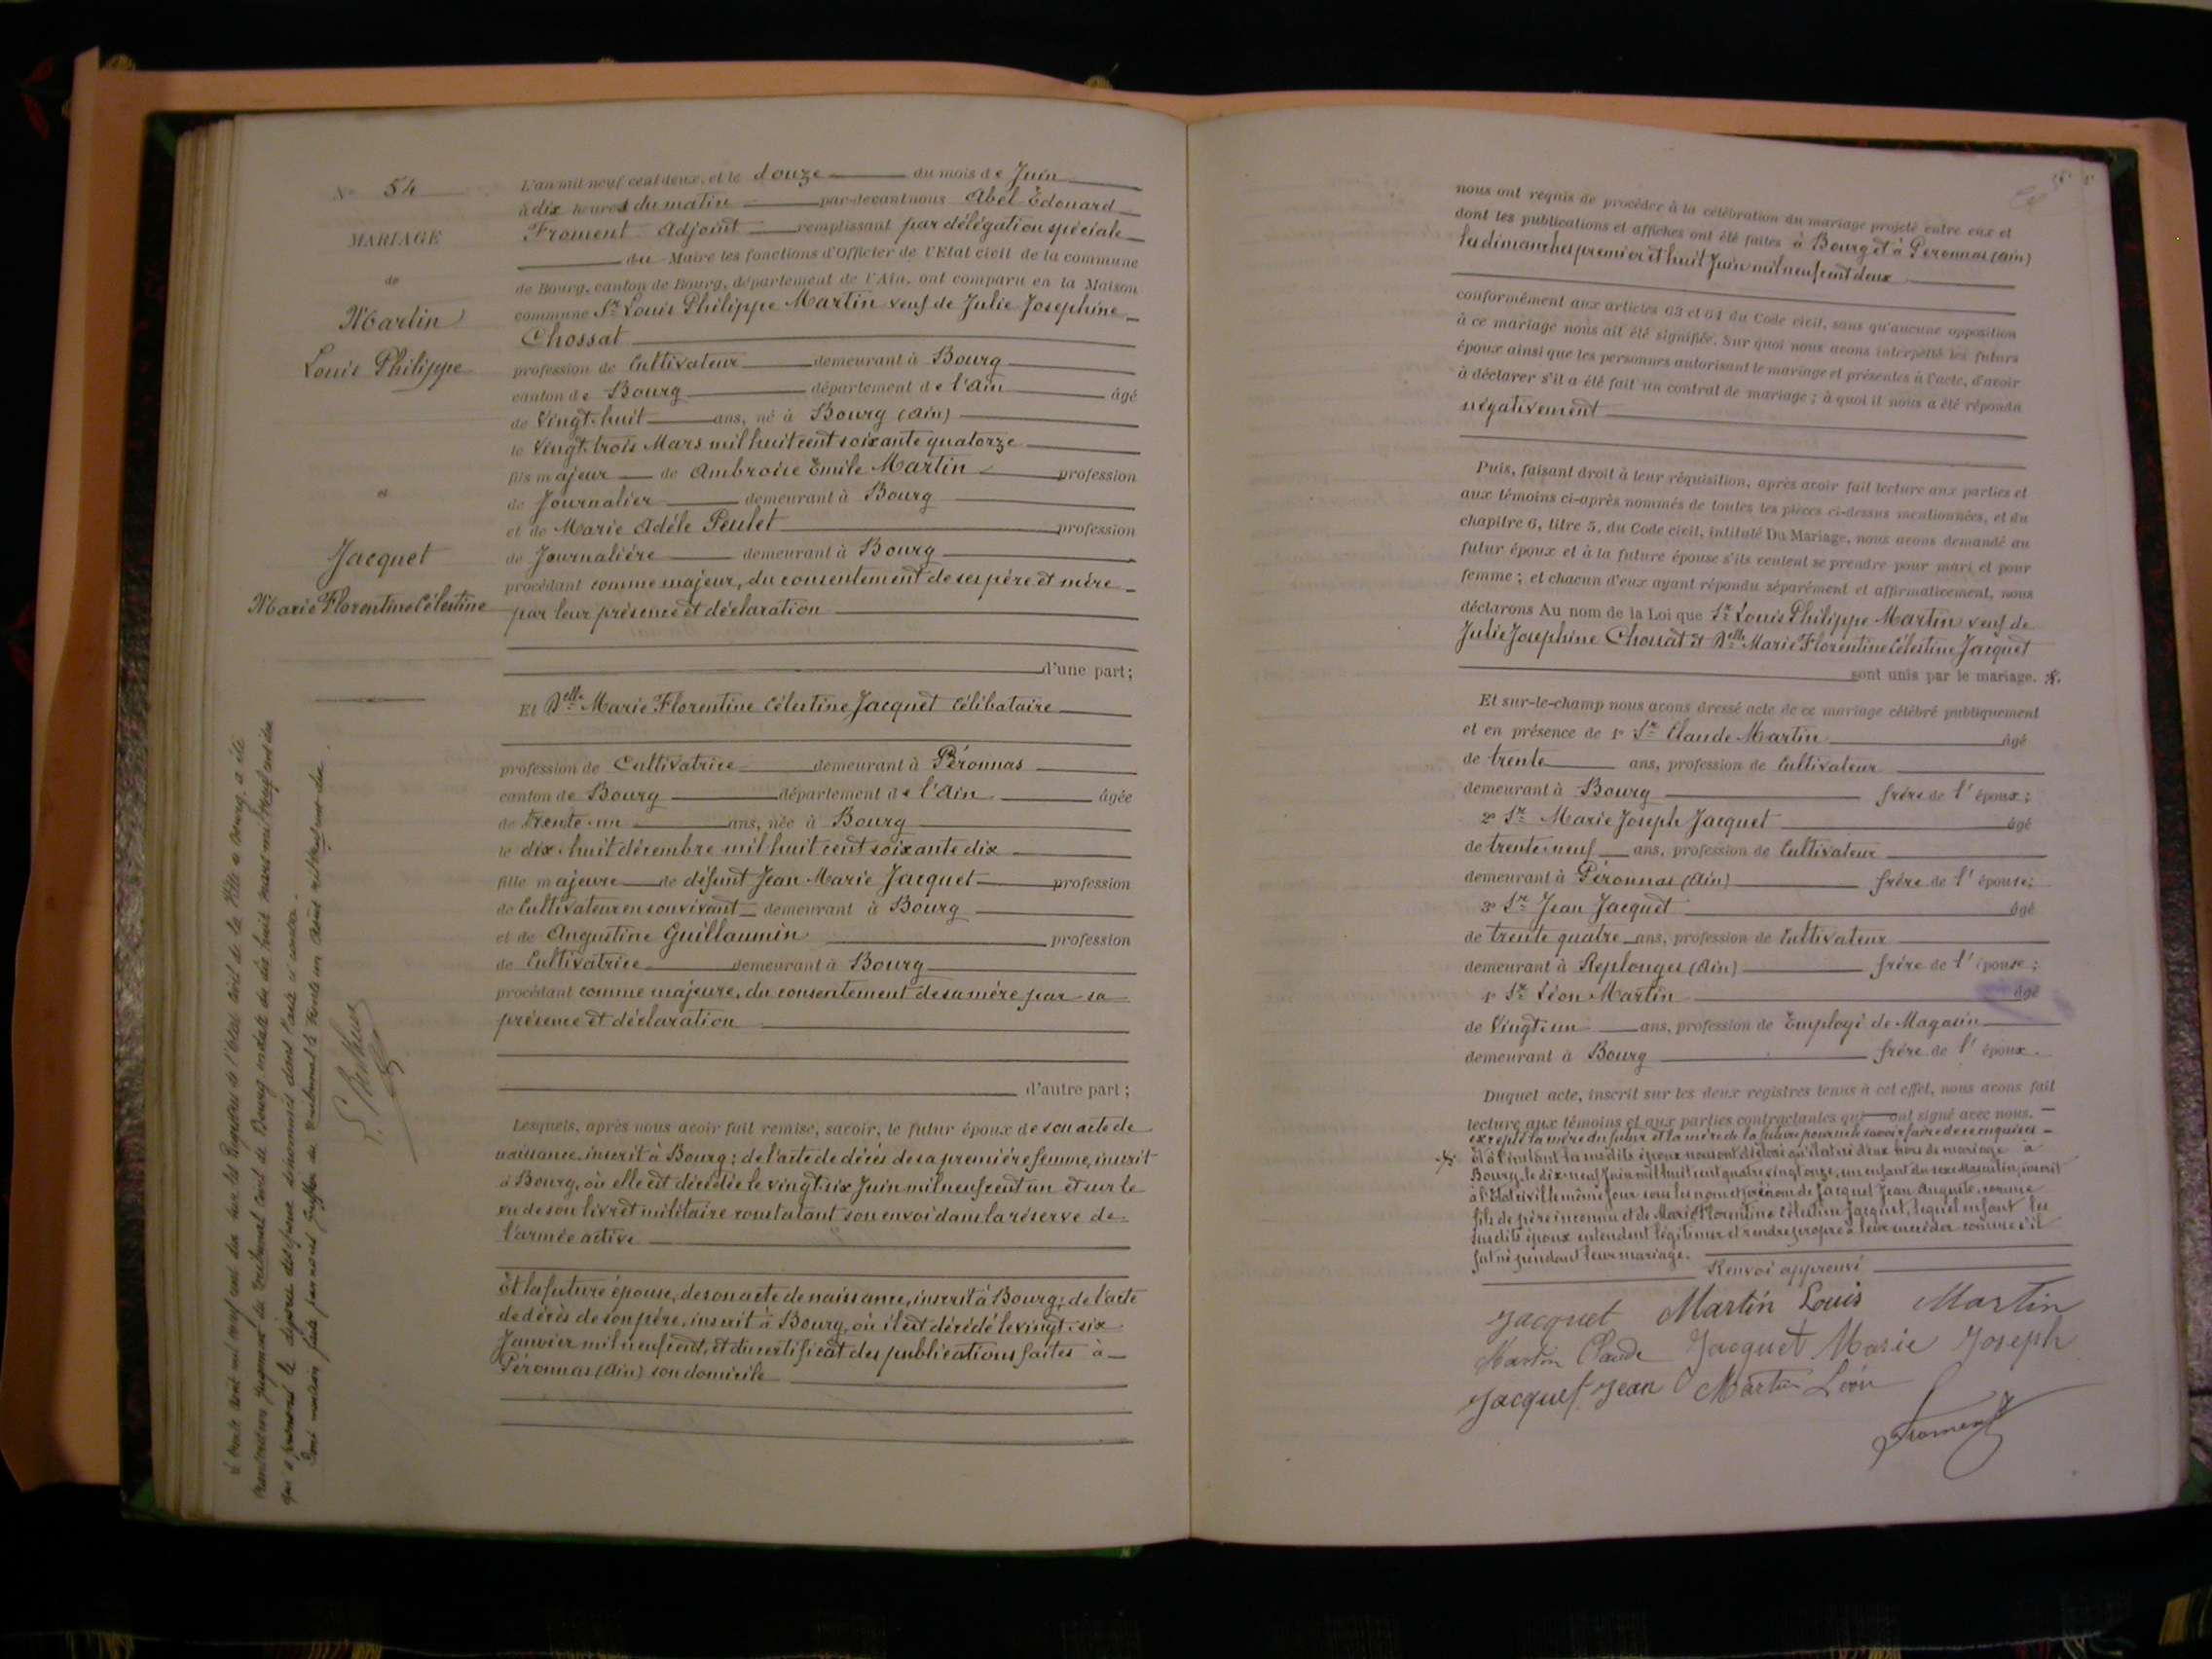 No 54
MARIAGE
de
Martin
Louis Philippe
et
Jacquet
Marie Florentine Célestine
L'an mil neuf cent deux, et le douze du mois de Juin
à dix heures du matin par-devant nous Abel Edouard
Froment Adjoint remplissant par délégation spéciale
du Maire les fonctions d'Officier de l'Etat civil de la commune
de Bourg, canton de Bourg, département de l'Ain, ont comparu en la Maison
commune Sr Louis Philippe Martin veuf de Julie Josephine
Chossat
profession de Cultivateur demeurant à Bourg
canton de Bourg département de l'Ain âgé
de Vingt-huit ans, né à Bourg (Ain)
le Vingt-trois Mars mil huit cent soixante quatorze
fils majeur de Ambroise Emile Martin profession
de Journalier demeurant à Bourg
et de Marie Adèle Peulet profession
de Journalière demeurant à Bourg
procédant comme majeur, du consentement de ses père et mère
par leur présence et déclaration
d'une part;
Et Delle Marie Florentine Célestine Jacquet Célibataire
profession de Cultivatrice demeurant à Péronnas
canton de Bourg département de l'Ain âgée
de trente-un ans, née à Bourg
le dix-huit décembre mil huit cent soixante dix
fille majeure de défunt Jean Marie Jacquet profession
de Cultivateur en son vivant demeurant à Bourg
et de Augustine Guillaumin profession
de Cultivatrice demeurant à Bourg
procédant comme majeure, du consentement de sa mère par sa
présence et déclaration
d'autre part;
Lesquels, après nous avoir fait remise, savoir, le futur époux de son acte de
naissance, inscrit à Bourg; de l'acte de décès de sa première femme, inscrit
à Bourg, où elle est décédée le vingt-six Juin mil neuf cent un et sur le
vu de son livret militaire constatant son envoi dans la réserve de
l'armée active
Et la future épouse, de son acte de naissance, inscrit à Bourg; de l'acte
de décès de son père, inscrit à Bourg, où il est décédé le vingt-six
Janvier mil neuf cent, et du certificat des publications faites à
Péronnas (Ain) son domicile
nous ont requis de procéder à la célébration du mariage projeté entre eux et
dont les publications et affiches ont été faites à Bourg et à Péronnas (Ain)
les dimanches premier et huit Juin mil neuf cent deux
conformément aux articles 63 et 64 du Code civil, sans qu'aucune opposition
à ce mariage nous ait été signifiée. Sur quoi nous avons interpellé les futurs
époux ainsi que les personnes autorisant le mariage et présentes à l'acte, d'avoir
à déclarer s'il a été fait un contrat de mariage; à quoi il nous a été répondu
négativement
Puis, faisant droit à leur réquisition, après avoir fait lecture aux parties et
aux témoins ci-après nommés de toutes les pièces ci-dessus mentionnées, et du
chapitre 6, titre 5, du Code civil, intitulé Du Mariage, nous avons demandé au
futur époux et à la future épouse s'ils veulent se prendre pour mari et pour
femme; et chacun d'eux ayant répondu séparément et affirmativement, nous
déclarons Au nom de la Loi que Sr Louis Philippe Martin veuf de
Julie Josephine Chossat et Delle Marie Florentine Célestine Jacquet
sont unis par le mariage.
Et sur-le-champ nous avons dressé acte de ce mariage célébré publiquement
et en présence de 1° Sr Claude Martin âgé
de trente ans, profession de Cultivateur
demeurant à Bourg frère de l'époux;
2° Sr Marie Joseph Jacquet âgé
de trente-neuf ans, profession de Cultivateur
demeurant à Péronnas (Ain) frère de l'épouse;
3° Sr Jean Jacquet âgé
de trente quatre ans, profession de Cultivateur
demeurant à Replonges (Ain) frère de l'épouse;
4° Sr Léon Martin âgé
de Vingt-un ans, profession de Employé de Magasin
demeurant à Bourg frère de l'époux.
Duquel acte, inscrit sur les deux registres tenus à cet effet, nous avons fait
lecture aux témoins et aux parties contractantes qui ont signé avec nous.
excepté la mère du futur et la mère de la future pour ne le savoir faire de ce enquises
Et à l'instant les susdits époux nous ont déclaré qu'il est né d'eux hors de mariage à
Bourg, le dix-neuf Juin mil huit cent quatre vingt onze, un enfant du sexe Masculin, inscrit
à l'Etat civil le même jour sous les nom et prénom de Jacquet Jean Auguste, comme
fils de père inconnu et de Marie Florentine Célestine Jacquet, lequel enfant les
susdits époux entendent légitimer et rendre propre à leur succéder comme s'il
fut né pendant leur mariage.
Renvoi approuvé
Jacquet Martin Louis Martin
Martin Claude Jacquet Marie Joseph
Jacquet Jean Martin Léon
Froment